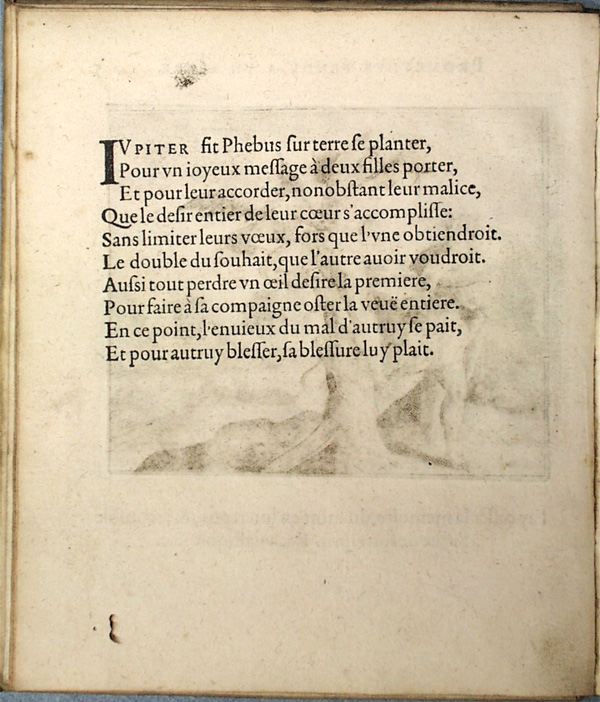 IVPITER fit Phebus ſur terre ſe planter,
Pour vn ioyeux meſſage à deux filles porter,
Et pour leur accorder, nonobſtant leur malice,
Que le deſir entier de leur cœur s'accompliſſe:
Sans limiter leurs vœux, fors que l'vne obtiendroit.
Le double du ſouhait, que l'autre auoir voudroit.
Auſsi tout perdre vn œil deſire la premiere,
Pour faire à ſa compaigne oſter la veuë entiere.
En ce point, l'enuieux du mal d'autruy ſe pait,
Et pour autruy bleſſer, ſa bleſſure luy plait.